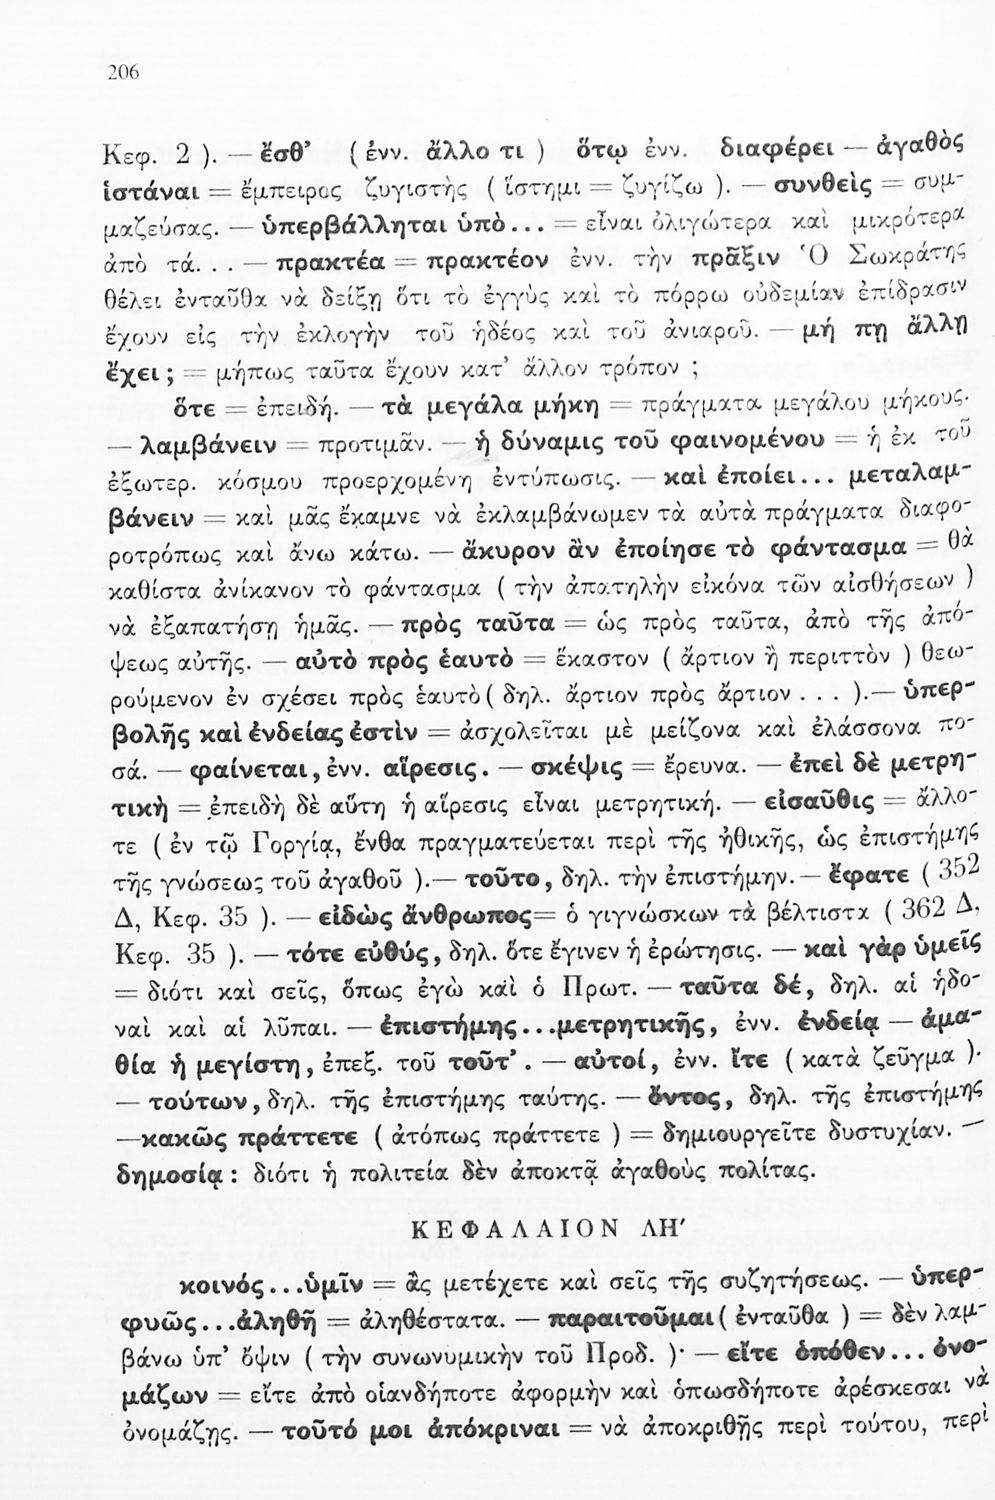 206
Κεφ. 2 ). — ἔσθ’ ( ἐνν. ἄλλο τι ) ὅτῳ ἐνν. διαφέρει — ἀγαθὸς
ἱστάναι = ἔμπειρος ζυγιστὴς ( ἵστημι = ζυγίζω ). — συνθεὶς = συμ-
μαζεύσας. — ὑπερβάλληται ὑπὸ... = εἶναι ὀλιγώτερα καὶ μικρότερα
ἀπὸ τά. . . — πρακτέα = πρακτέον ἐνν. τὴν πρᾶξιν Ὁ Σωκράτης
θέλει ἐνταῦθα νὰ δείξῃ ὅτι τὸ ἐγγὺς καὶ τὸ πόρρω οὐδεμίαν ἐπίδρασιν
ἔχουν εἰς τὴν ἐκλογὴν τοῦ ἡδέος καὶ τοῦ ἀνιαροῦ. — μή πῃ ἄλλῃ
ἔχει ; = μήπως ταῦτα ἔχουν κατ’ ἄλλον τρόπον ;
ὅτε = ἐπειδή. — τὰ μεγάλα μήκη = πράγματα μεγάλου μήκους·
— λαμβάνειν = προτιμᾶν. — ἡ δύναμις τοῦ φαινομένου = ἡ ἐκ τοῦ
ἐξωτερ. κόσμου προερχομένη ἐντύπωσις. — καὶ ἐποίει... μεταλαμ-
βάνειν = καὶ μᾶς ἔκαμνε νὰ ἐκλαμβάνωμεν τὰ αὐτὰ πράγματα διαφο-
ροτρόπως καὶ ἄνω κάτω. — ἄκυρον ἂν ἐποίησε τὸ φάντασμα = θὰ
καθίστα ἀνίκανον τὸ φάντασμα ( τὴν ἀπατηλὴν εἰκόνα τῶν αἰσθήσεων )
νὰ ἐξαπατήσῃ ἡμᾶς. — πρὸς ταῦτα = ὡς πρὸς ταῦτα, ἀπὸ τῆς ἀπό-
ψεως αὐτῆς. — αὐτὸ πρὸς ἑαυτὸ = ἕκαστον ( ἄρτιον ἢ περιττὸν ) θεω-
ρούμενον ἐν σχέσει πρὸς ἑαυτὸ ( δηλ. ἄρτιον πρὸς ἄρτιον . . . ).— ὑπερ-
βολῆς καὶ ἐνδείας ἐστὶν = ἀσχολεῖται μὲ μείζονα καὶ ἐλάσσονα πο-
σά. — φαίνεται, ἐνν. αἵρεσις. — σκέψις = ἔρευνα. — ἐπεὶ δὲ μετρη-
τικὴ = ἐπειδὴ δὲ αὕτη ἡ αἵρεσις εἶναι μετρητική. — εἰσαῦθις = ἄλλο-
τε ( ἐν τῷ Γοργίᾳ, ἔνθα πραγματεύεται περὶ τῆς ἠθικῆς, ὡς ἐπιστήμης
τῆς γνώσεως τοῦ ἀγαθοῦ ).— τοῦτο, δηλ. τὴν ἐπιστήμην.— ἔφατε ( 352
Δ, Κεφ. 35 ). — εἰδὼς ἄνθρωπος= ὁ γιγνώσκων τὰ βέλτιστα ( 362 Δ,
Κεφ. 35 ). — τότε εὐθύς, δηλ. ὅτε ἔγινεν ἡ ἐρώτησις. — καὶ γὰρ ὑμεῖς
= διότι καὶ σεῖς, ὅπως ἐγὼ καὶ ὁ Πρωτ. — ταῦτα δέ, δηλ. αἱ ἡδο-
ναὶ καὶ αἱ λῦπαι. — ἐπιστήμης...μετρητικῆς, ἐνν. ἐνδείᾳ — ἀμα-
θία ἡ μεγίστη, ἐπεξ. τοῦ τοῦτ’. — αὐτοί, ἐνν. ἴτε ( κατὰ ζεῦγμα )·
— τούτων, δηλ. τῆς ἐπιστήμης ταύτης. — ὄντος, δηλ. τῆς ἐπιστήμης
—κακῶς πράττετε ( ἀτόπως πράττετε ) = δημιουργεῖτε δυστυχίαν. —
δημοσίᾳ : διότι ἡ πολιτεία δὲν ἀποκτᾷ ἀγαθοὺς πολίτας.
ΚΕΦΑΛΑΙΟΝ ΛΗ′
κοινός...ὑμῖν = ἂς μετέχετε καὶ σεῖς τῆς συζητήσεως. — ὑπερ-
φυῶς...ἀληθῆ = ἀληθέστατα. — παραιτοῦμαι ( ἐνταῦθα ) = δὲν λαμ-
βάνω ὑπ’ ὄψιν ( τὴν συνωνυμικὴν τοῦ Προδ. )· — εἴτε ὁπόθεν... ὀνο-
μάζων = εἴτε ἀπὸ οἱανδήποτε ἀφορμὴν καὶ ὁπωσδήποτε ἀρέσκεσαι νὰ
ὀνομάζῃς. — τοῦτό μοι ἀπόκριναι = νὰ ἀποκριθῇς περὶ τούτου, περὶ